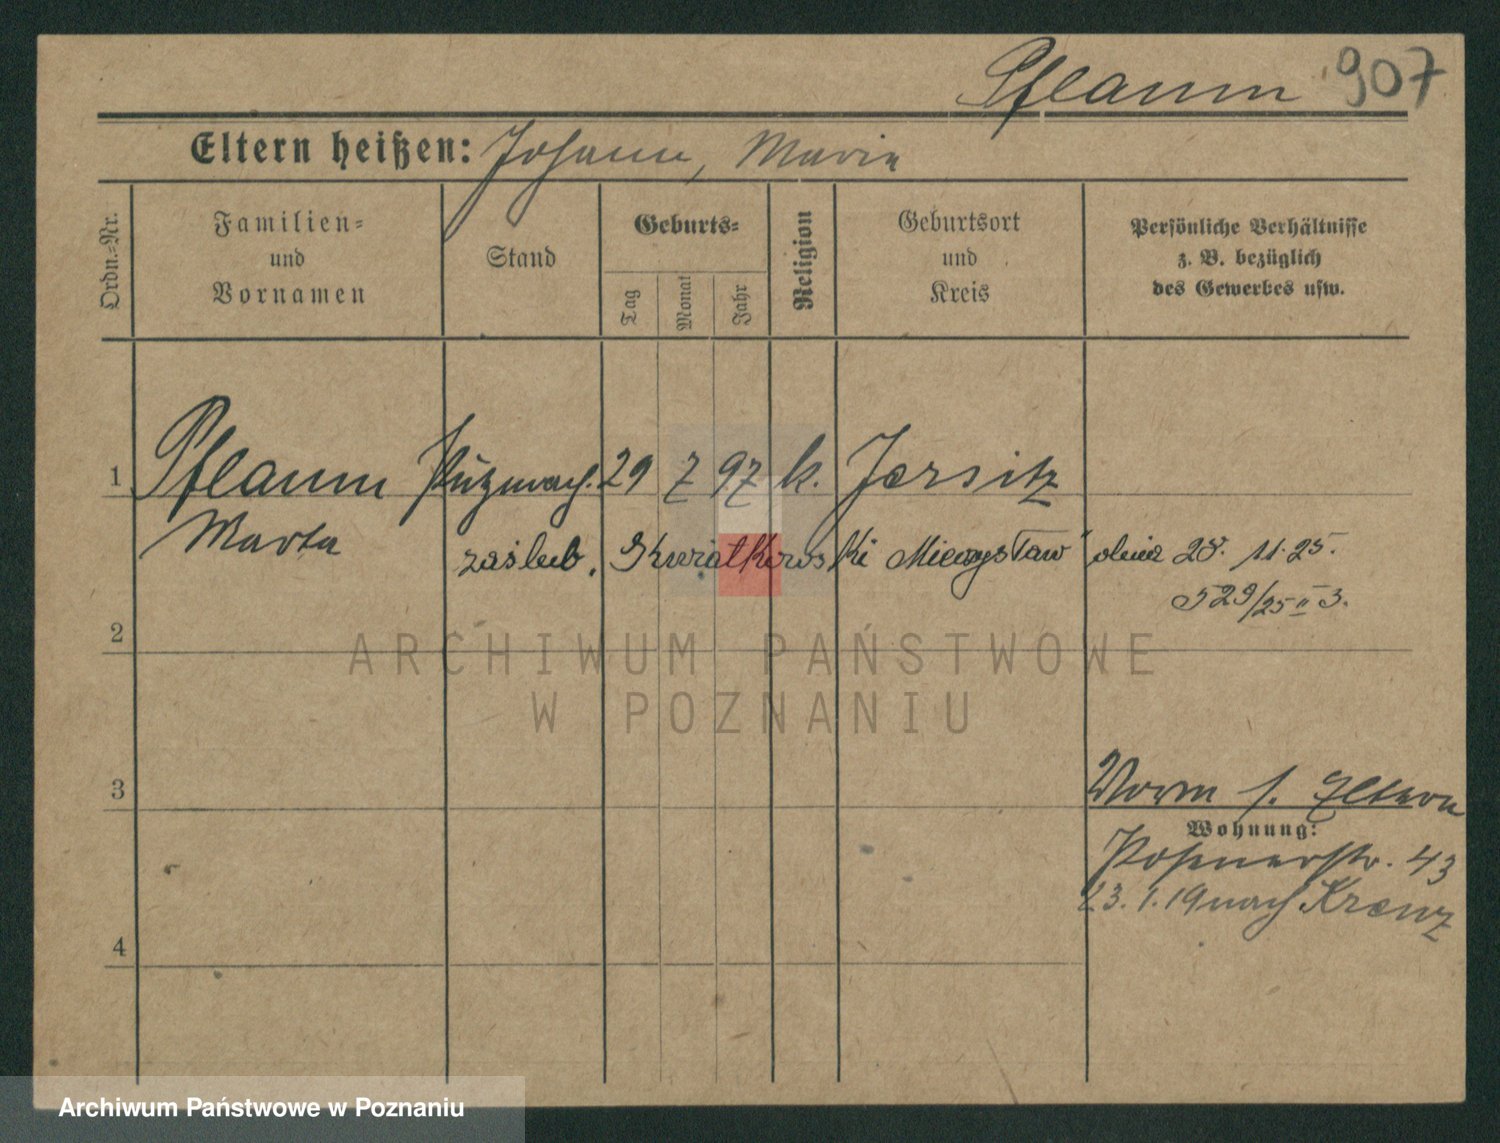 Pflaum 907
Eltern heißen: Johann, Maria
Ordn.-Nr.
Familien-
und
Vornamen
Stand
Geburts-
Tag
Monat
Jahr
Religion
Geburtsort
und
Kreis
Persönliche Verhältnisse
z. B. bezüglich
des Gewerbes usw.
1 Pflaum Putzmach. 29 7 97 k. Jersitz
Marta
zaślub. Kwiatkowski Mieczysław dnia 28. 11. 25.
529/25 II 3.
2
ARCHIWUM PAŃSTWOWE
W POZNANIU
3
Worm s. Eltern
Wohnung:
Posenerstr. 43
23. 1. 19 nach Kreuz
4
Archiwum Państwowe w Poznaniu